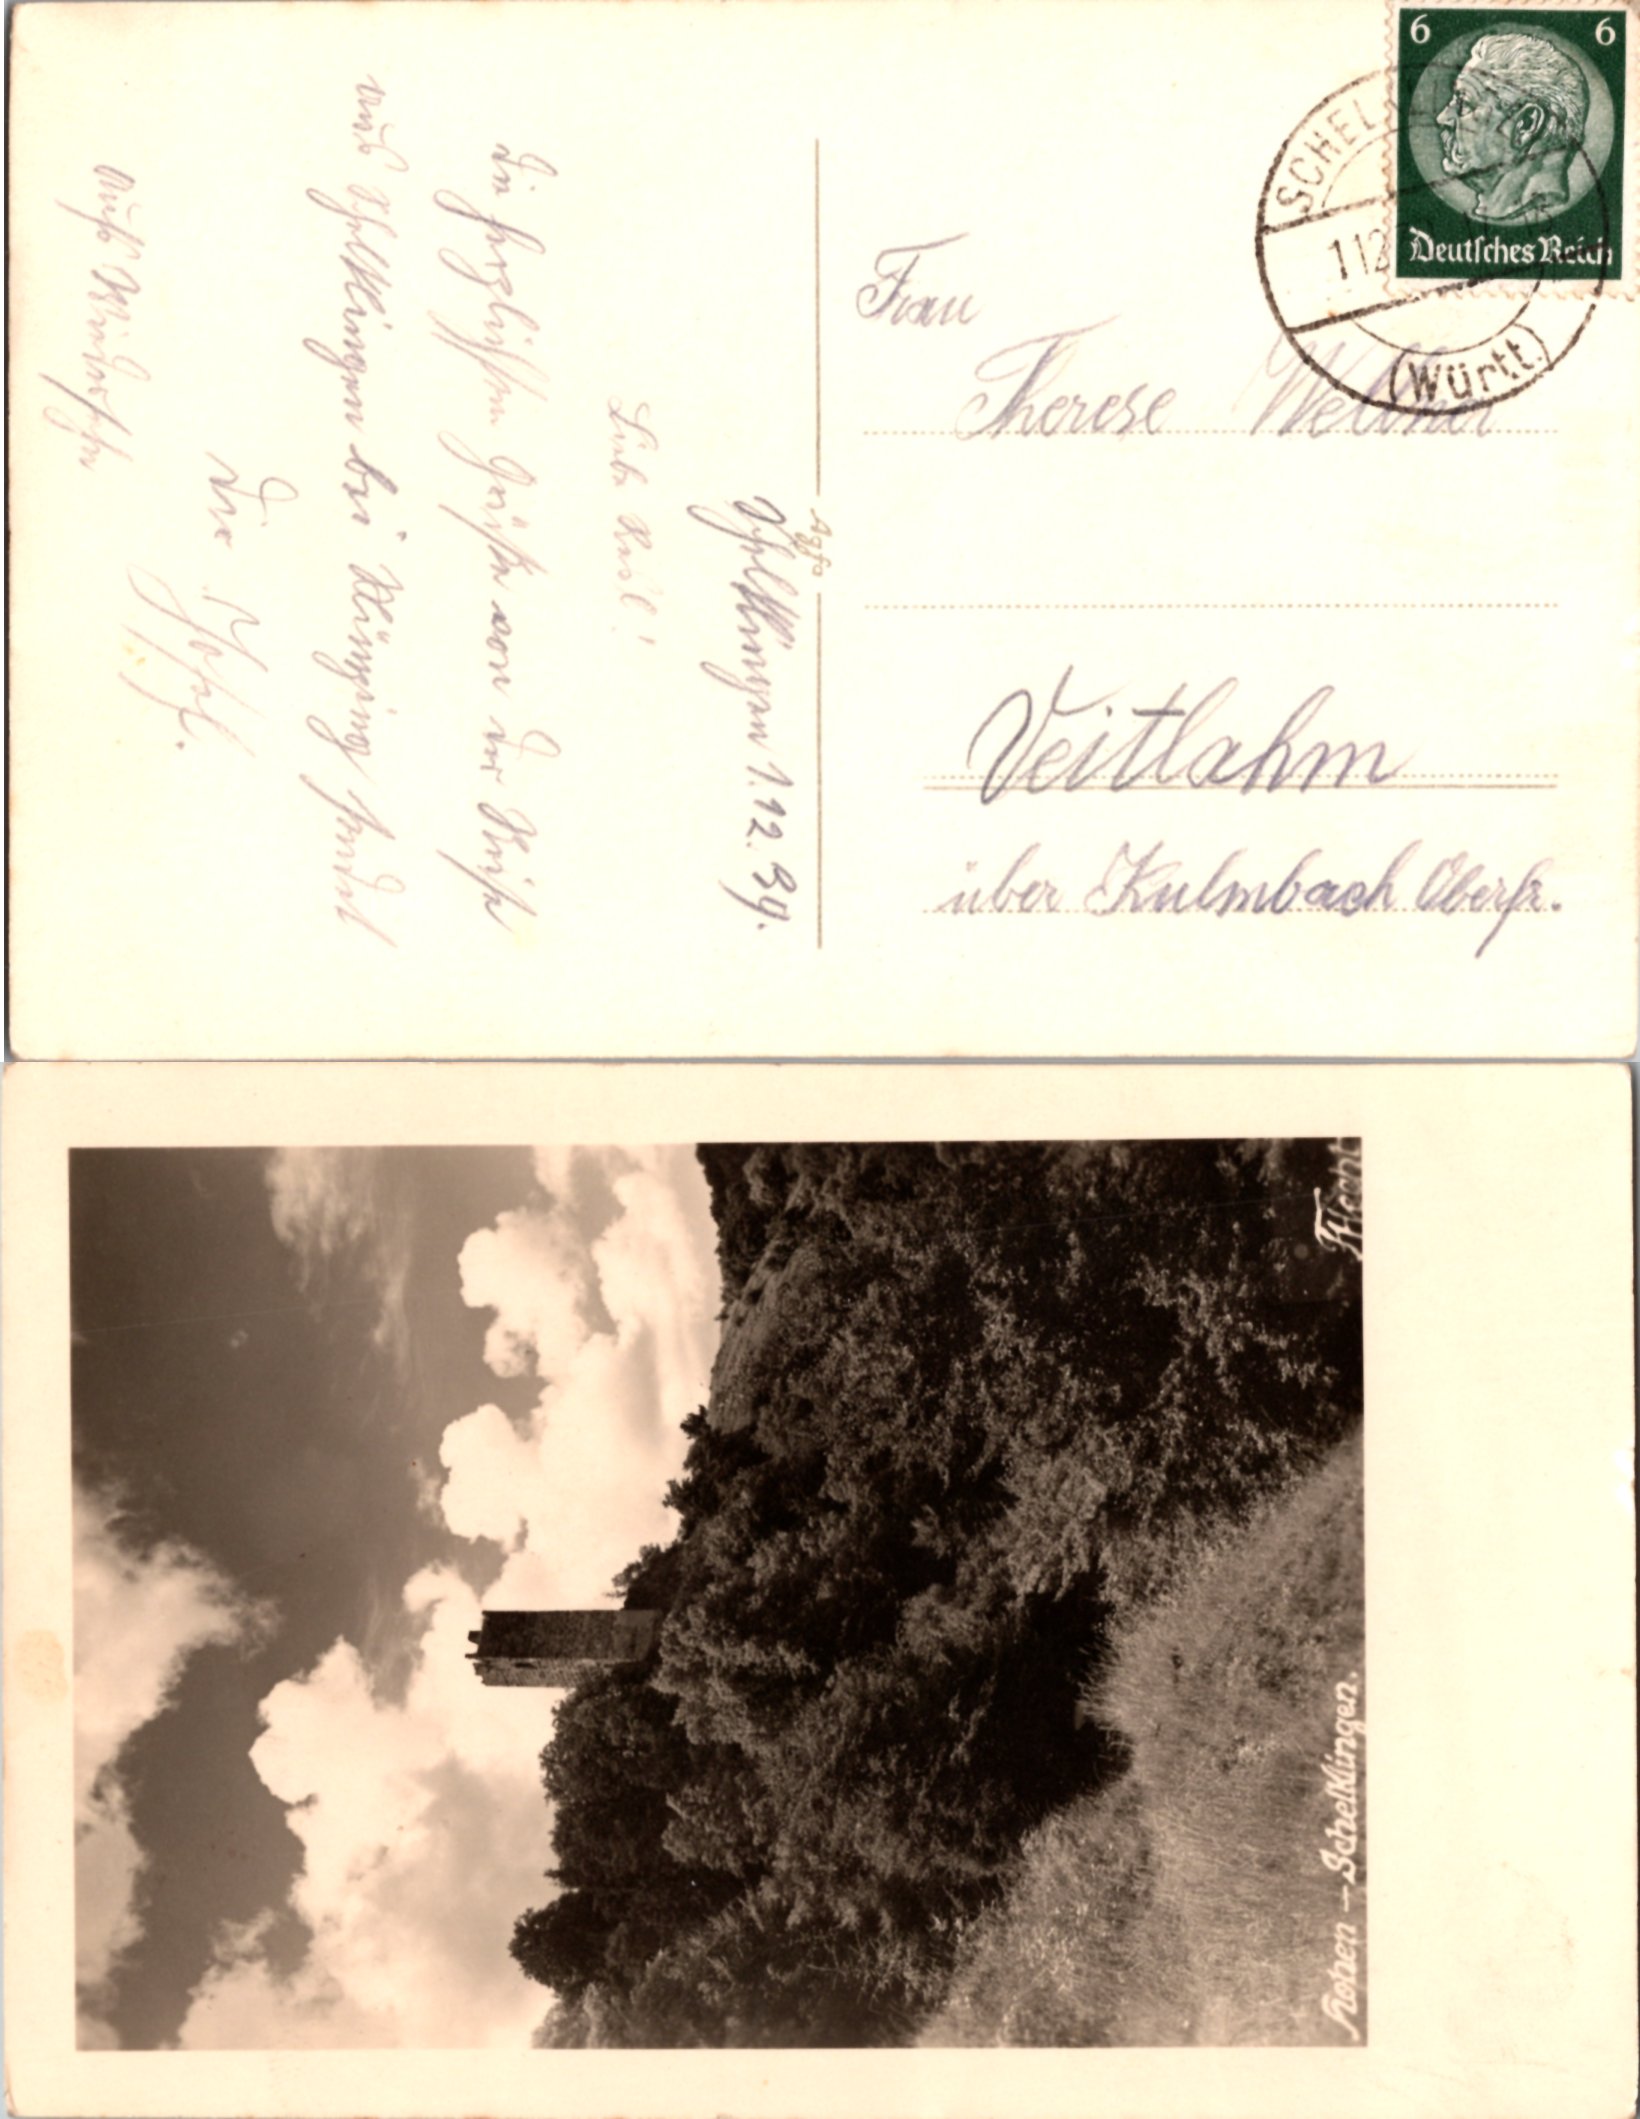 Schelklingen 1.12.39.
Liebe Resl!
Die herzlichsten Grüße von der Reise
aus Schelklingen bei Münsing sendet
Dir Josef.
Aufs Wiedersehn
Agfa
6 6
Deutsches Reich
SCHEL
1.12
(Württ.)
Frau
Therese
Veitlahm
über Kulmbach Oberfr.
Hohen - Schelklingen.